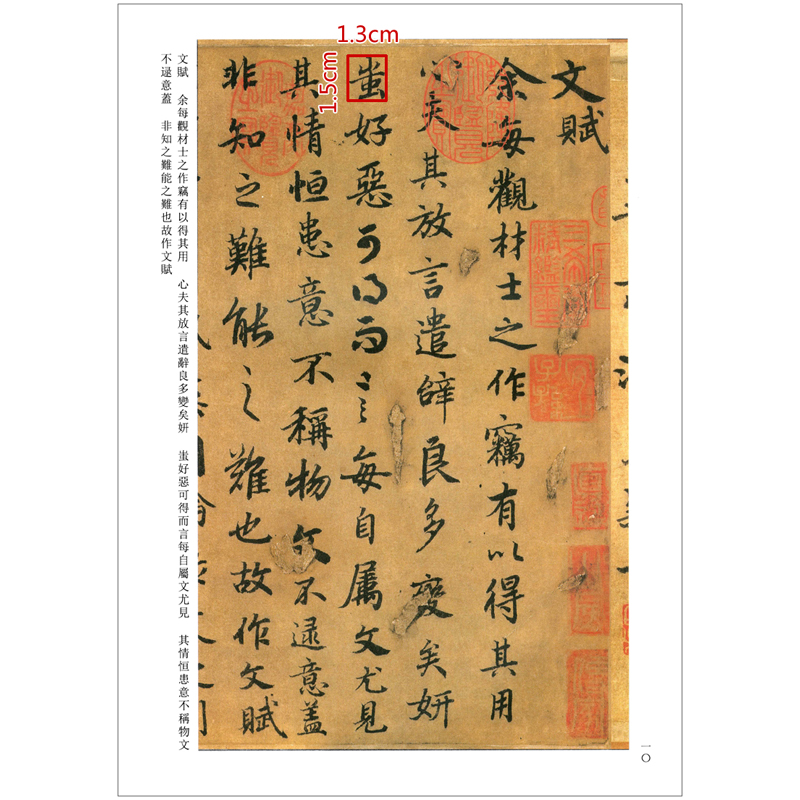 1.3cm
1.5cm
文賦
余每觀材士之作竊有以得其用
心夫其放言遣辭良多變矣妍
蚩好惡可得而言每自屬文尤見
其情恒患意不稱物文不逮意蓋
非知之難能之難也故作文賦
文賦 余每觀材士之作竊有以得其用 心夫其放言遣辭良多變矣妍 蚩好惡可得而言每自屬文尤見 其情恒患意不稱物文
不逮意蓋 非知之難能之難也故作文賦
一〇